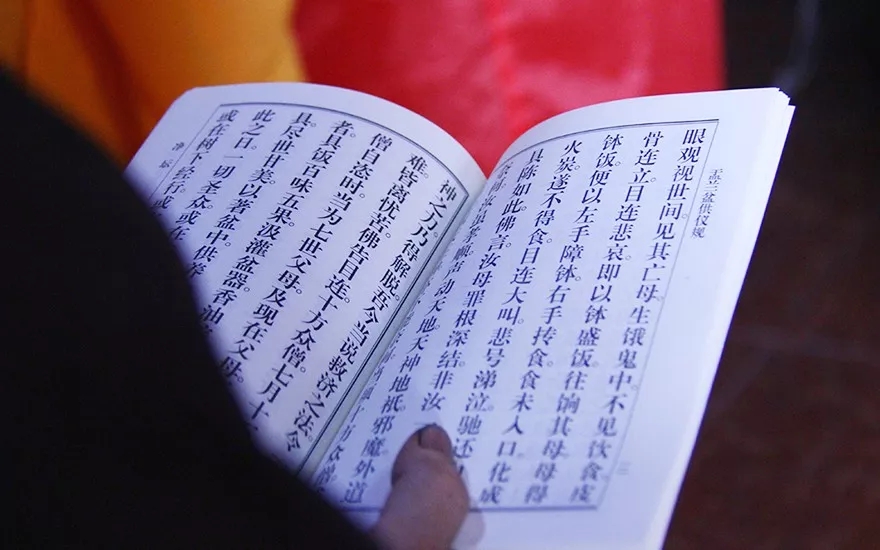 盂兰盆供仪规
眼观视世间。见其亡母。生饿鬼中。不见饮食。皮
骨连立。目连悲哀。即以钵盛饭。往饷其母。母得
钵饭。便以左手障钵。右手抟食。食未入口。化成
火炭。遂不得食。目连大叫。悲号涕泣。驰还
具陈如此。佛言。汝母罪根深结。非汝
汝虽孝顺。声动天地。天神地祇。邪魔外道
神之力。乃得解脱。吾今当说救济之法。令
难。皆离忧苦。佛告目连。十方众僧。七月十
僧自恣时。当为七世父母。及现在父母。
者。具饭百味五果。汲灌盆器。香油
具。尽世甘美。以著盆中。供养
此之日。一切圣众。或在
或在树下经行。或